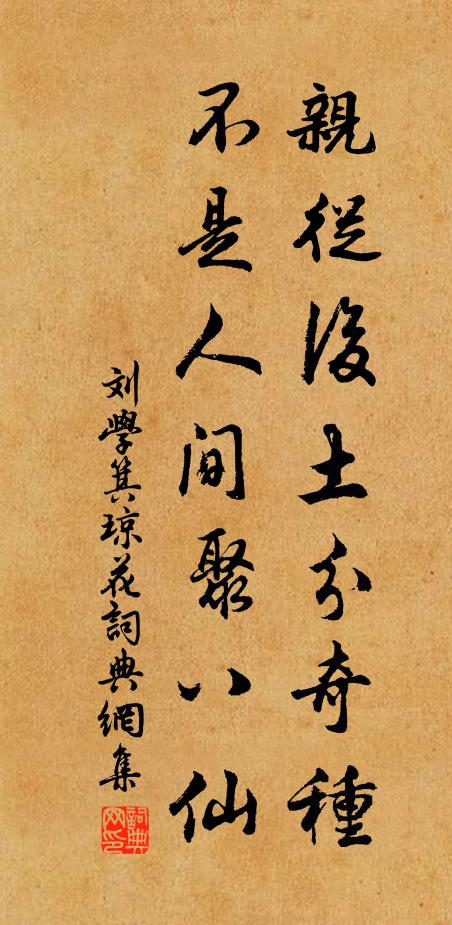 親從後土分奇種
不是人间聚八仙
刘學箕琼花詞典網集
詞典网印